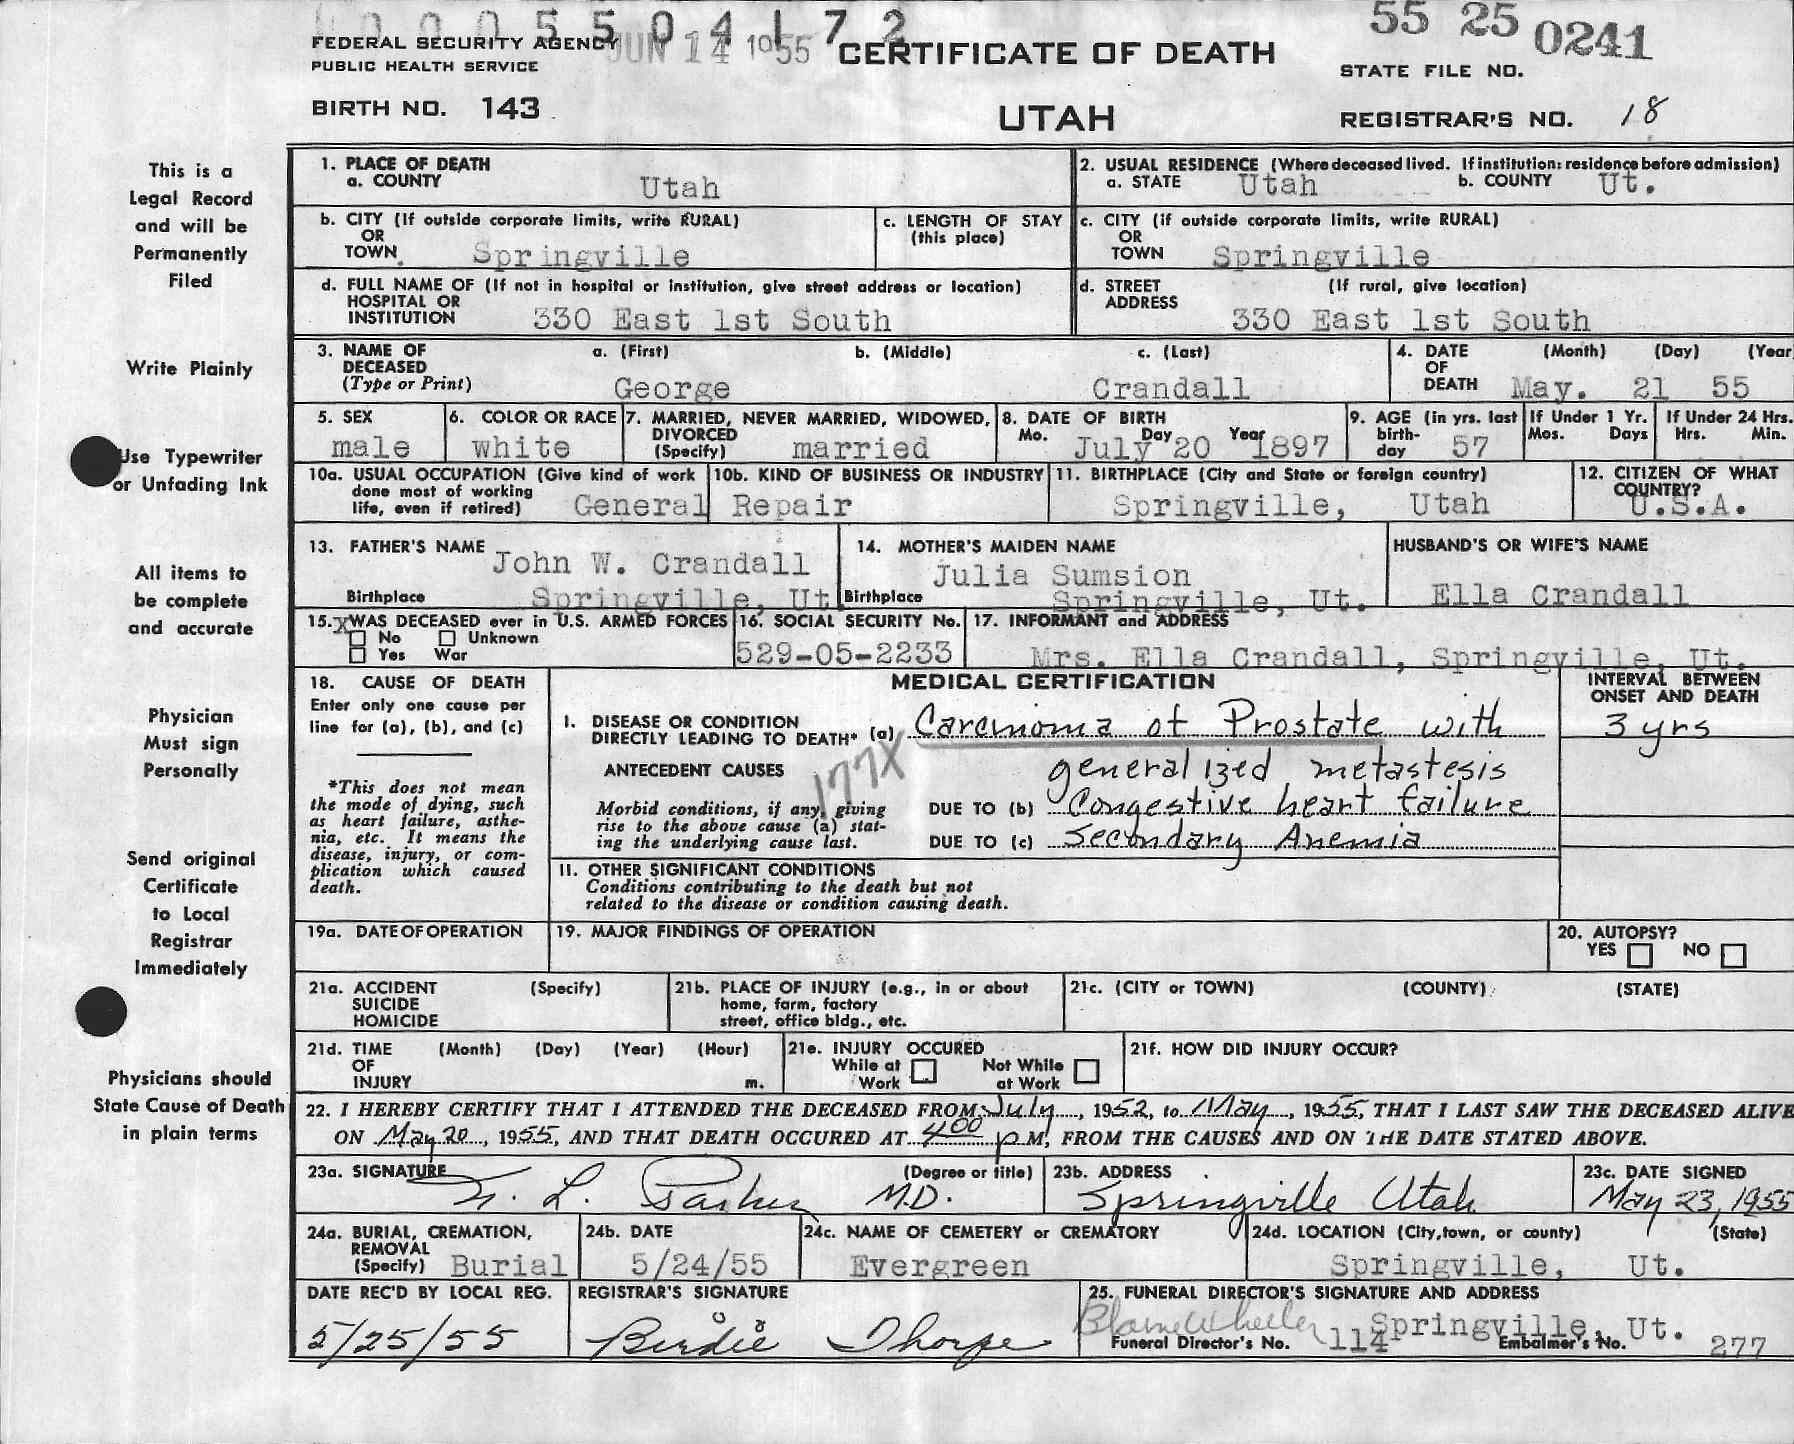 0005504172
55 25 0241
FEDERAL SECURITY AGENCY JUN 14 1955 CERTIFICATE OF DEATH
PUBLIC HEALTH SERVICE
STATE FILE NO.
BIRTH NO. 143
UTAH
REGISTRAR'S NO. 18
This is a
Legal Record
and will be
Permanently
Filed
Write Plainly
Use Typewriter
or Unfading Ink
All items to
be complete
and accurate
Physician
Must sign
Personally
Send original
Certificate
to Local
Registrar
Immediately
Physicians should
State Cause of Death
in plain terms
1. PLACE OF DEATH
a. COUNTY Utah
2. USUAL RESIDENCE (Where deceased lived. If institution: residence before admission)
a. STATE Utah b. COUNTY Ut.
b. CITY (If outside corporate limits, write RURAL)
OR
TOWN Springville
c. LENGTH OF STAY
(this place)
c. CITY (if outside corporate limits, write RURAL)
OR
TOWN Springville
d. FULL NAME OF (If not in hospital or institution, give street address or location)
HOSPITAL OR
INSTITUTION 330 East 1st South
d. STREET (If rural, give location)
ADDRESS
330 East 1st South
3. NAME OF a. (First) b. (Middle) c. (Last)
DECEASED
(Type or Print) George Crandall
4. DATE (Month) (Day) (Year
OF
DEATH May. 21 55
5. SEX
male
6. COLOR OR RACE
white
7. MARRIED, NEVER MARRIED, WIDOWED,
DIVORCED
(Specify) married
8. DATE OF BIRTH
Mo. Day Year
July 20 1897
9. AGE (in yrs. last
birth-
day 57
If Under 1 Yr.
Mos. Days
If Under 24 Hrs.
Hrs. Min.
10a. USUAL OCCUPATION (Give kind of work
done most of working
life, even if retired) General
10b. KIND OF BUSINESS OR INDUSTRY
Repair
11. BIRTHPLACE (City and State or foreign country)
Springville, Utah
12. CITIZEN OF WHAT
COUNTRY?
U.S.A.
13. FATHER'S NAME
John W. Crandall
Birthplace Springville, Ut
14. MOTHER'S MAIDEN NAME
Julia Sumsion
Birthplace Springville, Ut.
HUSBAND'S OR WIFE'S NAME
Ella Crandall
15. X WAS DECEASED ever in U.S. ARMED FORCES
No Unknown
Yes War
16. SOCIAL SECURITY No.
529-05-2233
17. INFORMANT and ADDRESS
Mrs. Ella Crandall, Springville, Ut.
18. CAUSE OF DEATH
Enter only one cause per
line for (a), (b), and (c)
*This does not mean
the mode of dying, such
as heart failure, asthe-
nia, etc. It means the
disease, injury, or com-
plication which caused
death.
MEDICAL CERTIFICATION
INTERVAL BETWEEN
ONSET AND DEATH
I. DISEASE OR CONDITION
DIRECTLY LEADING TO DEATH* (a) Carcinoma of Prostate with
3 yrs
177X
ANTECEDENT CAUSES generalized metastesis
Morbid conditions, if any, giving
rise to the above cause (a) stat-
ing the underlying cause last.
DUE TO (b) Congestive heart failure
DUE TO (c) Secondary Anemia
II. OTHER SIGNIFICANT CONDITIONS
Conditions contributing to the death but not
related to the disease or condition causing death.
19a. DATE OF OPERATION
19. MAJOR FINDINGS OF OPERATION
20. AUTOPSY?
YES NO
21a. ACCIDENT (Specify)
SUICIDE
HOMICIDE
21b. PLACE OF INJURY (e.g., in or about
home, farm, factory
street, office bldg., etc.
21c. (CITY or TOWN) (COUNTY) (STATE)
21d. TIME (Month) (Day) (Year) (Hour)
OF
INJURY m.
21e. INJURY OCCURED
While at Not While
Work at Work
21f. HOW DID INJURY OCCUR?
22. I HEREBY CERTIFY THAT I ATTENDED THE DECEASED FROM July, 1952, to May, 1955, THAT I LAST SAW THE DECEASED ALIVE
ON May 20, 1955, AND THAT DEATH OCCURED AT 4:00 p M, FROM THE CAUSES AND ON THE DATE STATED ABOVE.
23a. SIGNATURE (Degree or title)
L. Parker M.D.
23b. ADDRESS
Springville Utah
23c. DATE SIGNED
May 23, 1955
24a. BURIAL, CREMATION,
REMOVAL
(Specify) Burial
24b. DATE
5/24/55
24c. NAME OF CEMETERY or CREMATORY
Evergreen
24d. LOCATION (City, town, or county) (State)
Springville, Ut.
DATE REC'D BY LOCAL REG.
5/25/55
REGISTRAR'S SIGNATURE
Birdie Thorpe
25. FUNERAL DIRECTOR'S SIGNATURE AND ADDRESS
Blaine Wheeler Springville, Ut.
Funeral Director's No. 114 Embalmer's No. 277